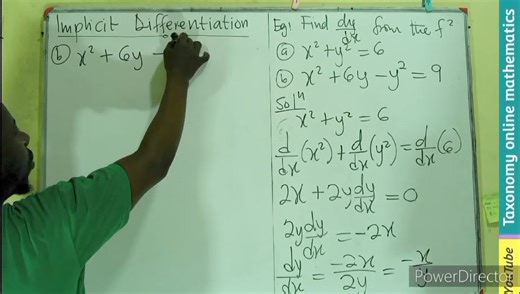 Implicit Differentiation
(b) x² + 6y −
Eg1 Find dy/dx from the fⁿ
(a) x² + y² = 6
(b) x² + 6y − y² = 9
Solⁿ
x² + y² = 6
d/dx(x²) + d/dx(y²) = d/dx(6)
2x + 2y dy/dx = 0
2y dy/dx = −2x
dy/dx = −2x/2y = −x/y
Taxonomy online mathematics
YouTube
PowerDirector